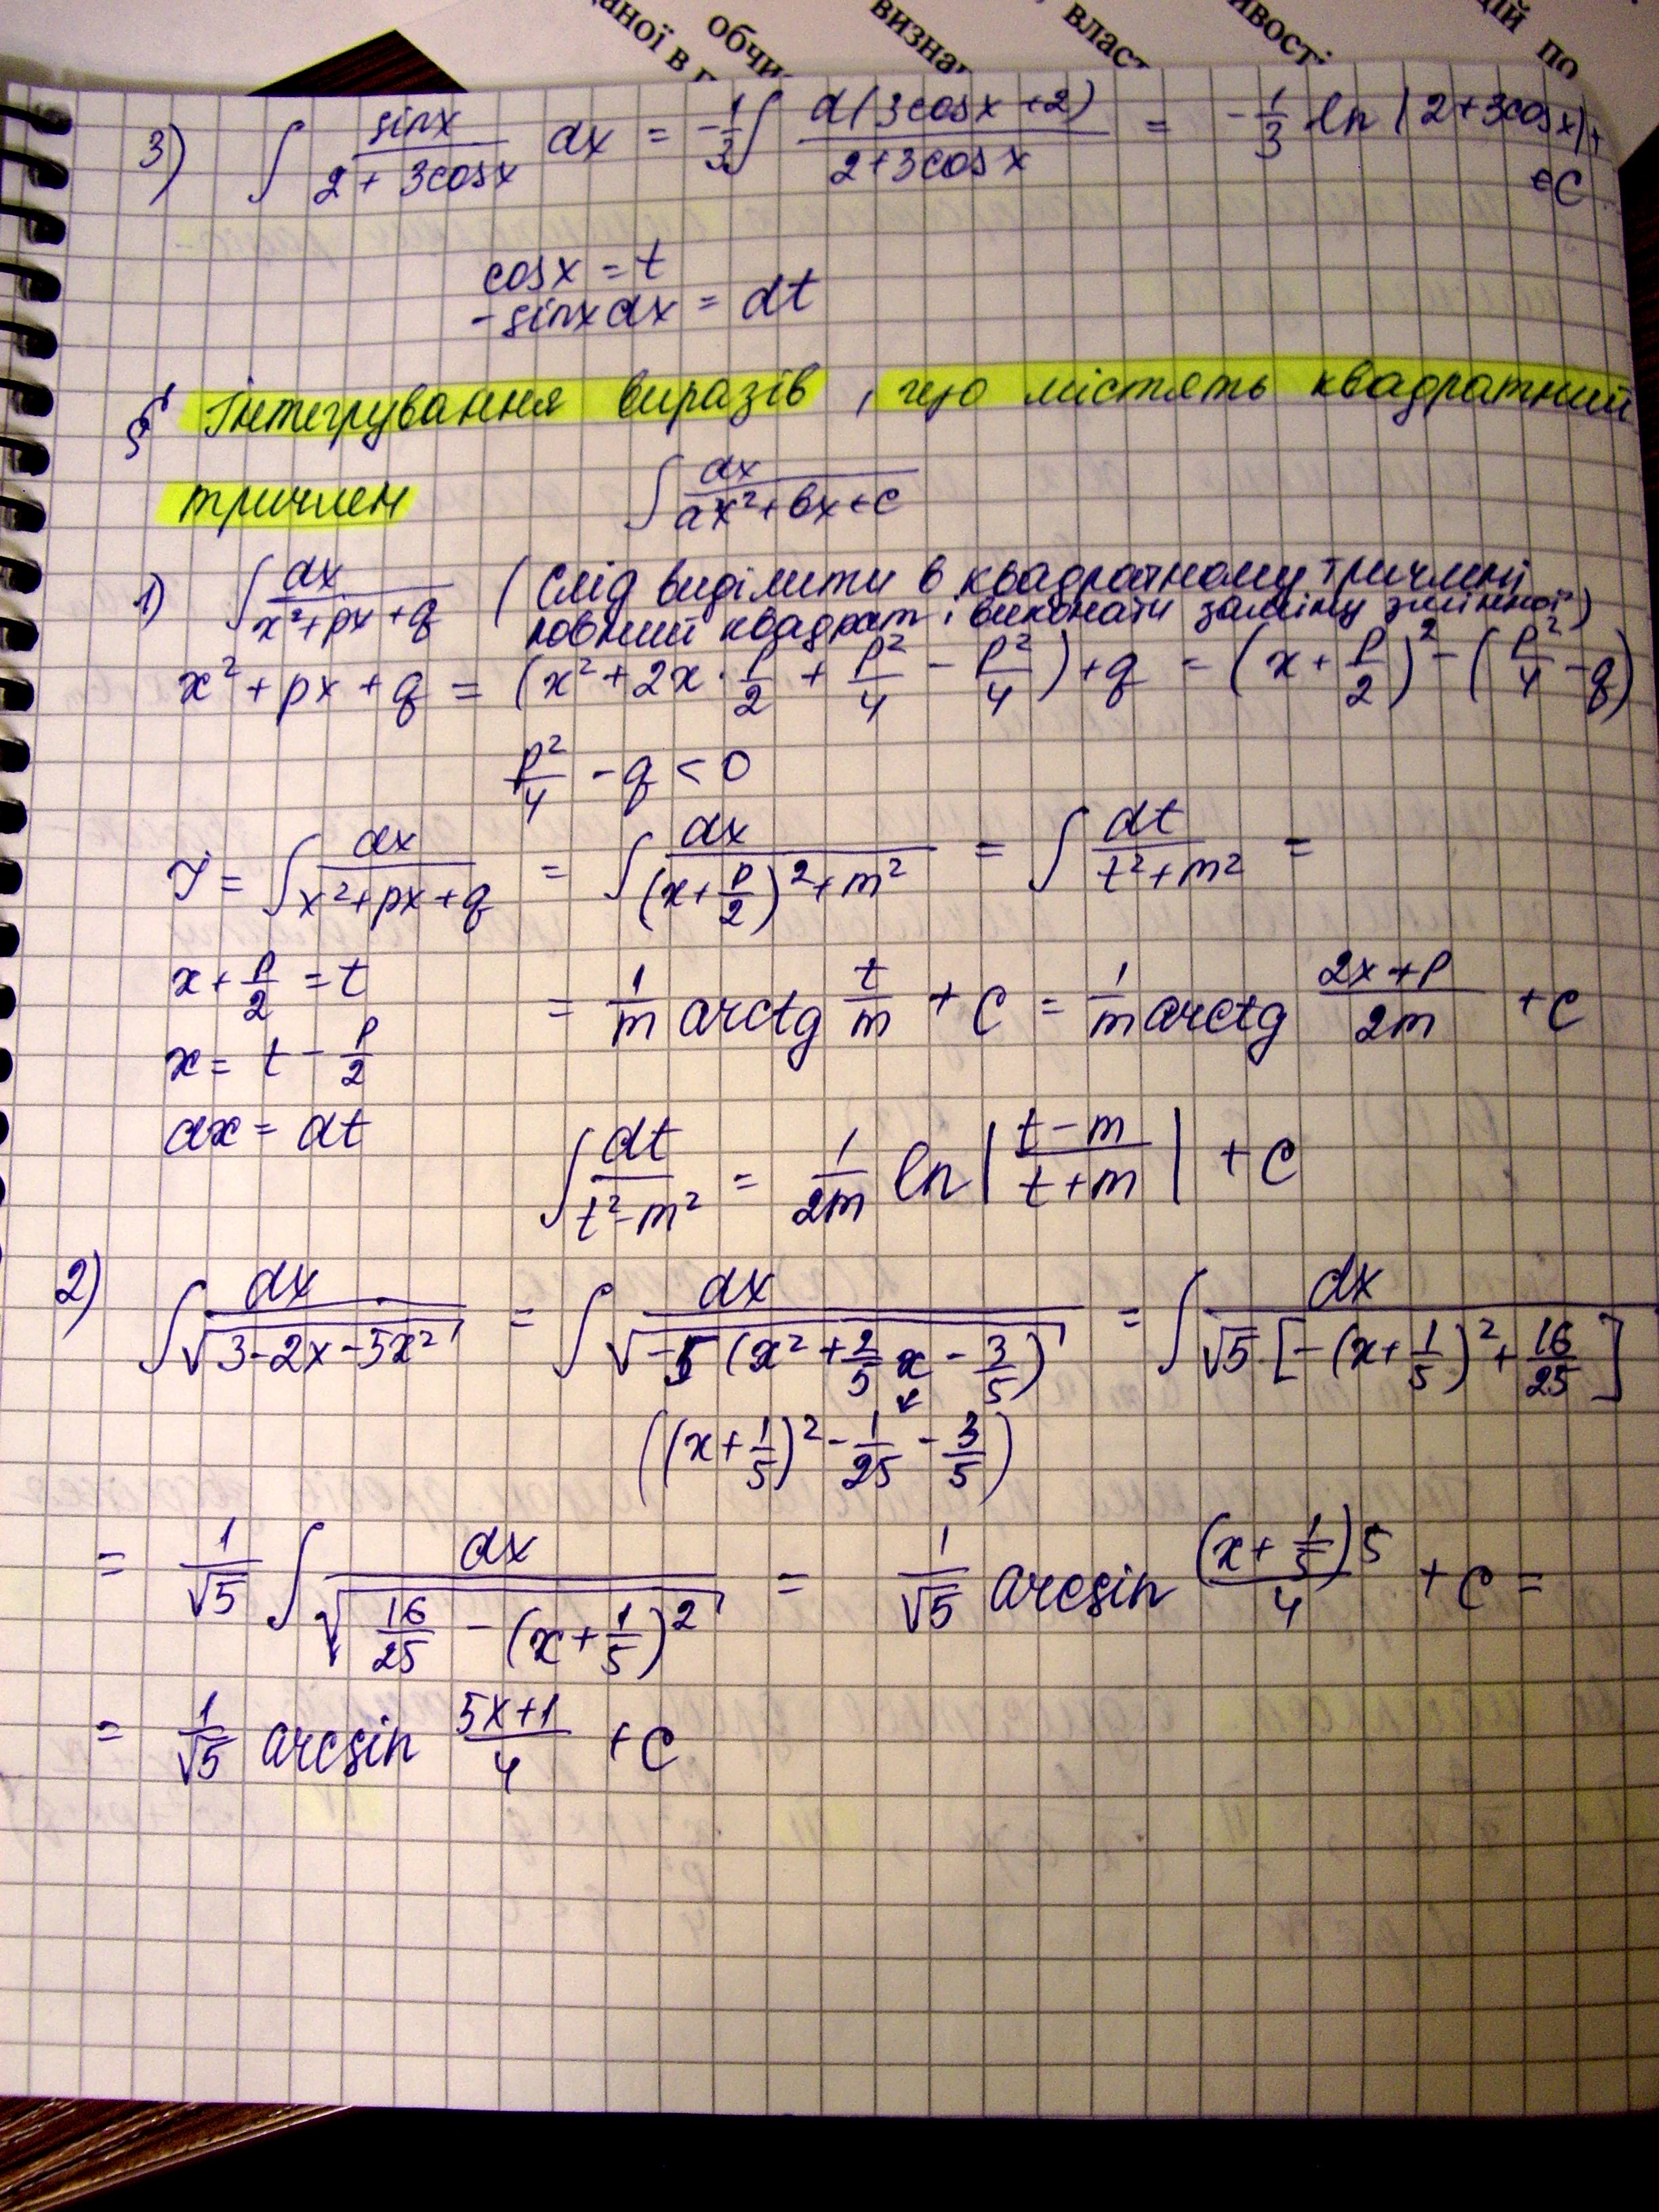 даної в
обчи
визна
власт
ивості
ій по
3) ∫ sinx/(2 + 3cosx) dx = -1/3 ∫ d(3cosx+2)/(2+3cosx) = -1/3 ln(2+3cosx)+
+C
cosx = t
-sinxdx = dt
§ Інтегрування виразів, що містять квадратний
тричлен ∫ dx/(ax²+bx+c)
1) ∫ dx/(x²+px+q) (Слід виділити в квадратному тричлені
повний квадрат і виконати заміну змінної)
x²+px+q = (x²+2x·p/2 + p²/4 - p²/4)+q = (x+p/2)² - (p²/4 - q)
p²/4 - q < 0
J = ∫ dx/(x²+px+q) = ∫ dx/((x+p/2)²+m²) = ∫ dt/(t²+m²) =
x+p/2 = t
= 1/m arctg t/m + C = 1/m arctg (2x+p)/2m + C
x = t - p/2
dx = dt
∫ dt/(t²-m²) = 1/2m ln|(t-m)/(t+m)| + C
2) ∫ dx/√(3-2x-5x²) = ∫ dx/√(-5(x²+2/5x-3/5)) = ∫ dx/(√5·[-(x+1/5)²+16/25])
((x+1/5)²-1/25-3/5)
= 1/√5 ∫ dx/√(16/25-(x+1/5)²) = 1/√5 arcsin (x+1/5)5/4 + C =
= 1/√5 arcsin (5x+1)/4 + C